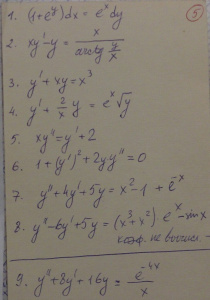 1. (1+e^y)dx = e^x dy
5
2. xy'-y = x / arctg y/x
3. y' + xy = x³
4. y' + 2/x y = e^x √y
5. xy'' = y' + 2
6. 1+(y')² + 2yy'' = 0
7. y'' + 4y' + 5y = x² - 1 + e^-x
8. y'' - 6y' + 5y = (x³ + x²) e^x - sin x
коэф. не вычисл -
9. y'' + 8y' + 16y = e^-4x / x